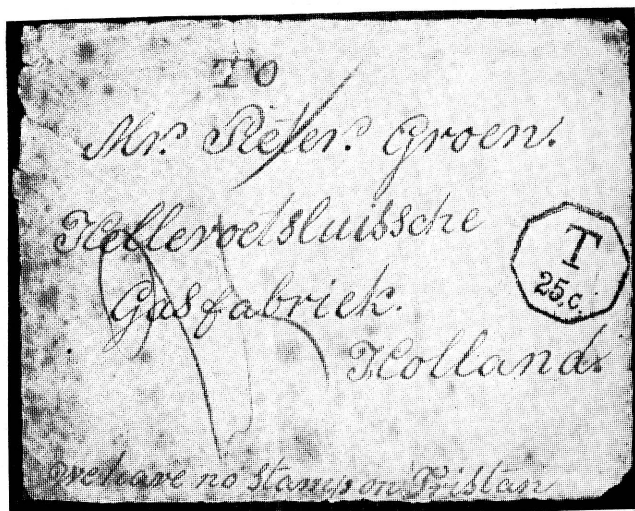 To
Mr. Pieter. Groen.
Helleroetsluissche
T
25.c.
Gasfabriek.
Holland.
we have no stamps on Tristan